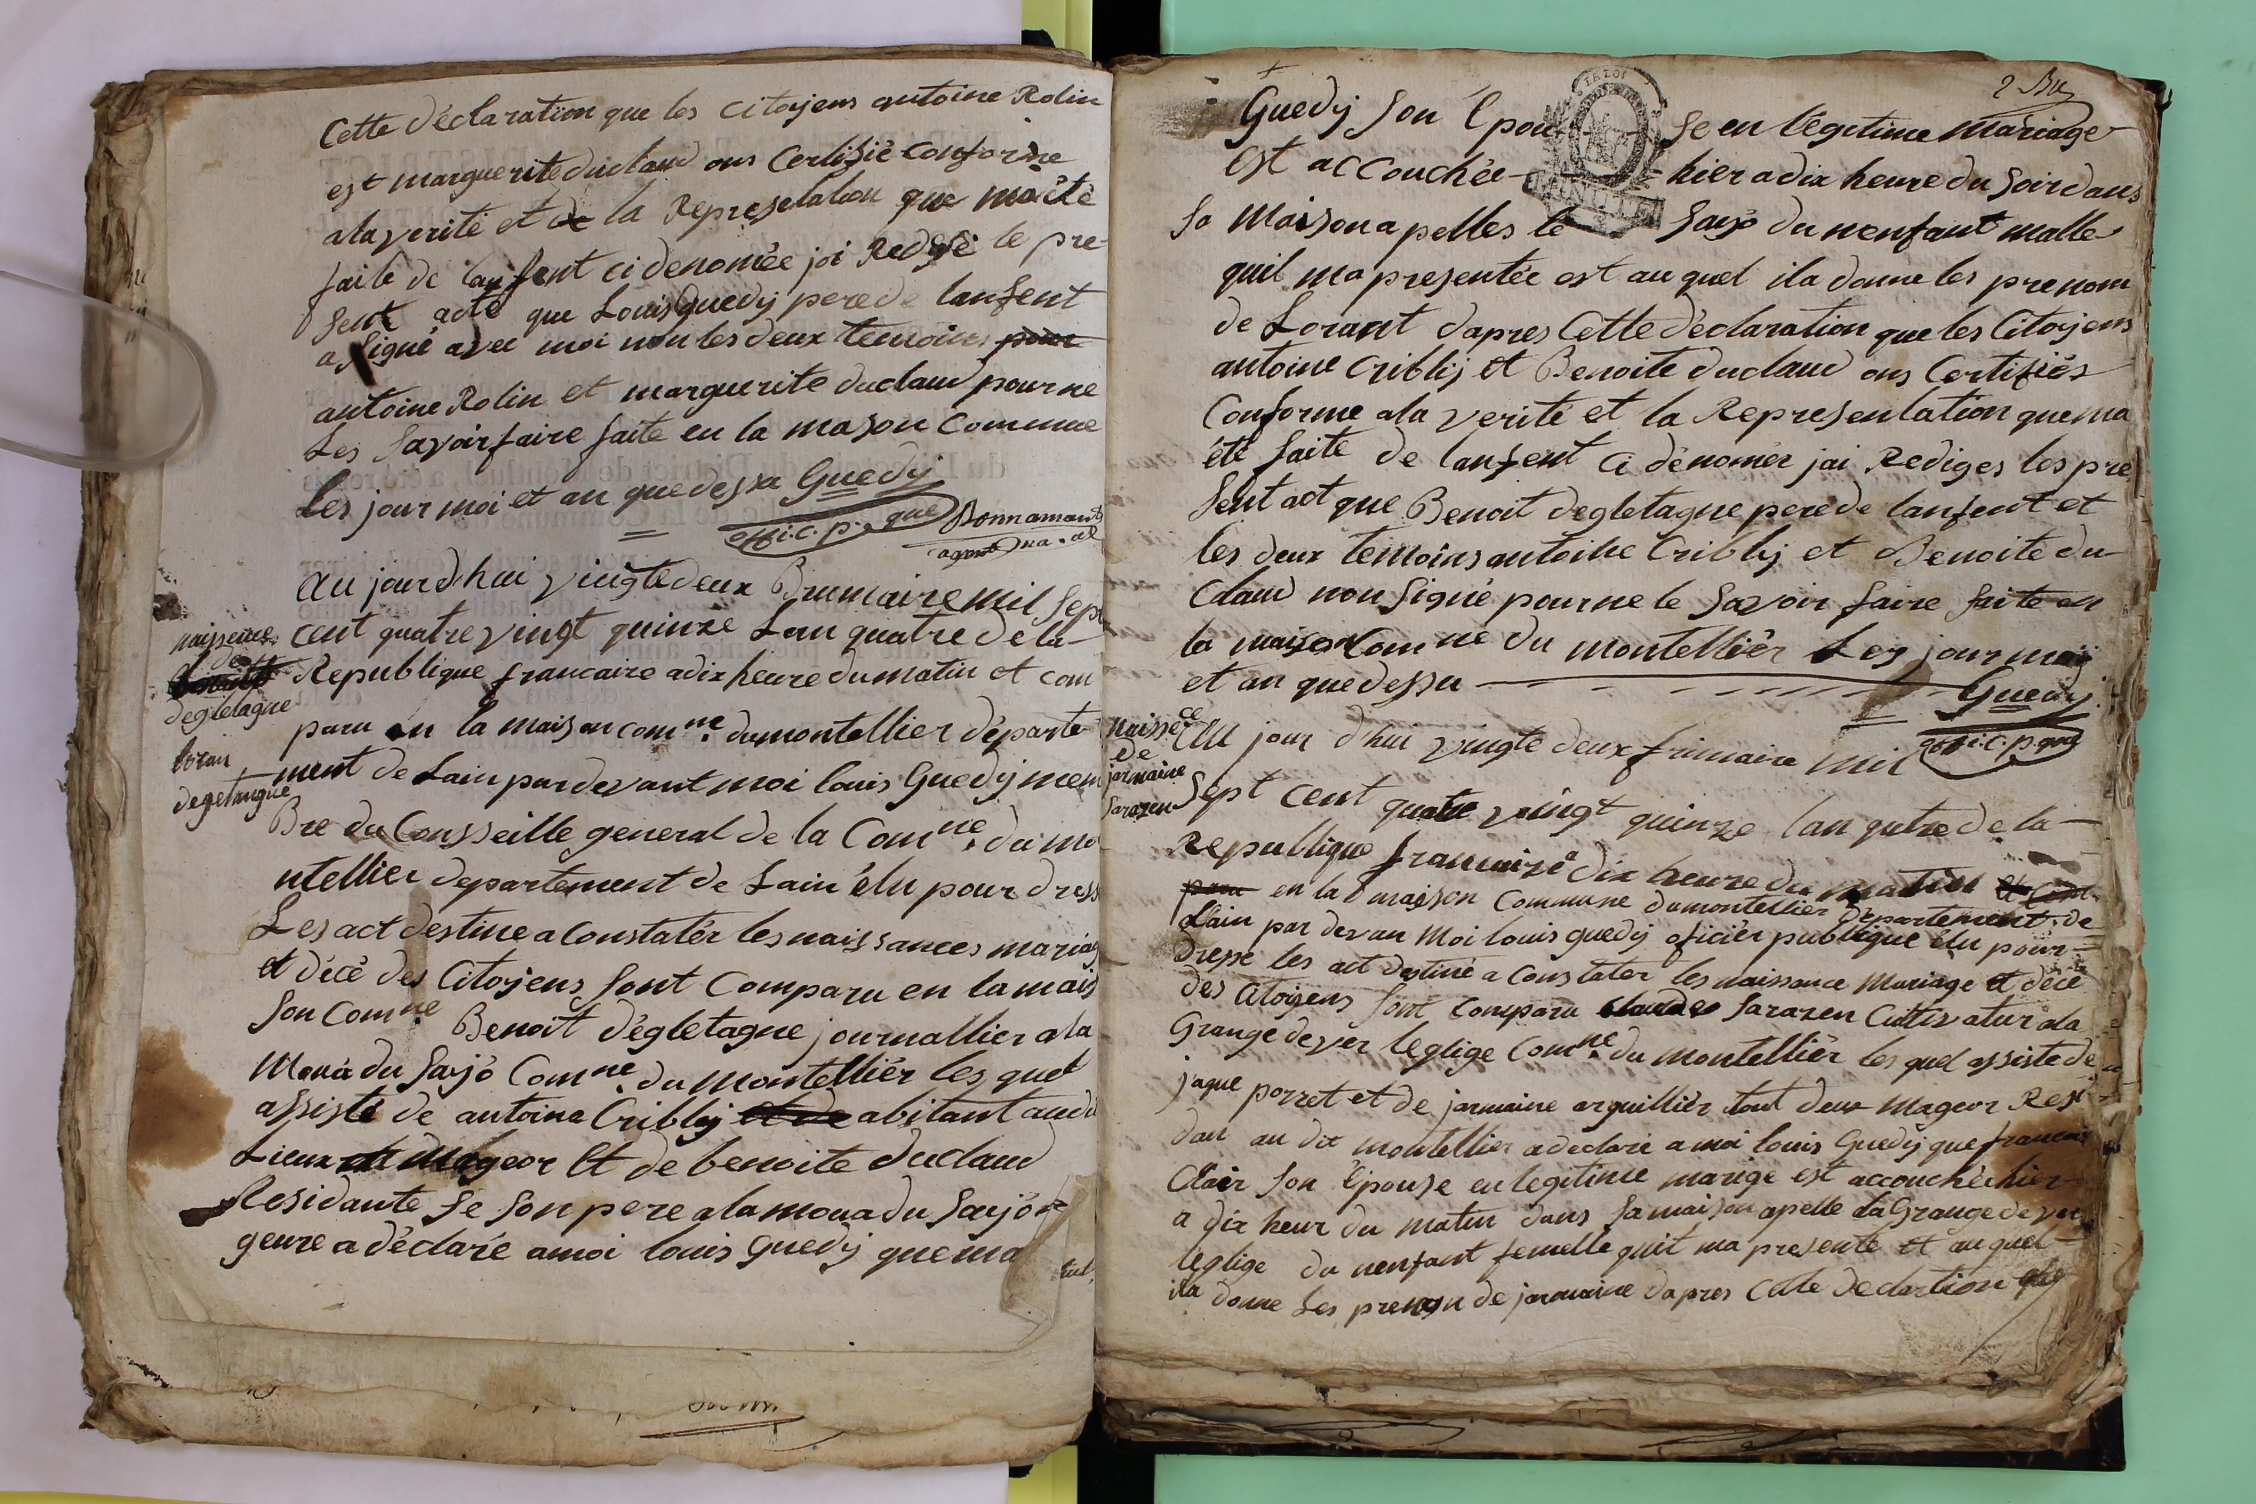 Cette déclaration que les citoyens antoine Rolin
est marguerite duclaud ons Certifié conforme
a la verité et de la Represetation que ma été
faite de lanfent ci denomée jai Redigé le pre-
sent acte que Louis Guedy pere de lanfent
a signé avec moi non les deux temoins pour
antoine Rolin et marguerite duclaud pour ne
Les savoir faire faite en la mason Commue
Les jour moi et an que dessu Guedy
offi.c.p.que Bonnamant
agent na.al
au jourd'hui vingte deux Brumaire mil sept
naissence cent quatre vingt quinze Lan quatre de la
de
Republique francaire a dix heure du matin et com
degletagne
paru en la maison comne. du montellier départe-
degletangne
ment de Lain par devant moi louis Guedy mem
Bre du Consseille general de la Comne. du mo
ntellier departement de Lain élu pour dress
Les act destine a Constatér les naissances mariag
et décé des Citoyens sont Comparu en la mais
son Comne Benoit d'égletagne journallier a la
Moua du Sayjo Comne. du Montelliér les quel
assisté de antoine Cribly et de abitant au di
Lieux et Mageor Et de benoite duclaud
Residante se son pere a la moua du Sayjo
geure a déclaré a moi louis Guedy que ma
2 Bre
Guedy son épou se en legitime mariage
Est accouchée hier a dix heure du soir dans
sa Maison apelles le Sayjo du nenfant malle
quil ma presentée est au quel il a donne les prenom
de Lorant dapres Cette déclaration que les Citoyens
antoine Cribly et Benoite duclaud ons Certifiés
Conforme a la verité et la Representation que ma
été faite de lanfent ci dénomér jai Rediges les pre
sent act que Benoit degletagne pere de lanfent et
les deux temoins antoine Cribly et Benoite du-
claud non signé pour ne le savoir faire faite en
la maison Comne du montelliér Les jour moy
et an que dessu
Guedy
offi.c.p.que
Naissce
de
jarmaine
Sarazen
Au jour d'hui vingte deux frimaire mil
Sept cent quatre vingt quinze lan qutre de la
Republique francaize a dix heure du matin et Com-
paru en la maison Commune du montellier département de
Lain par devan Moi louis guedy oficiér publique élu pour
drese les act destiné a Constater les naissance Mariage et décé
des Citoyens sont Comparu claude Sarazen Cultivatur a la
Grange de ver leglige Comne. du montelliér les quel assiste de
jaque porret et de jarmaine arguilliér tout deux Mageor Resi-
dan au dit montellier a declaré a moi louis Guedy que francois
Clair son épouse en legitime marige est accouchée hier
a dix heur du matin dans sa maison apelle La Grange de ver
leglige du nenfant femelle quit ma presenté et au quel
il a donne les prenon de jarmaine dapres Cette declartion que